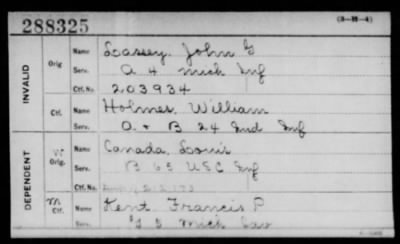 288325
(3-28-4)
INVALID
Orig
Name Lassey, John G
Serv. A 4 Mich Inf
Ctf. No. 203934
Ctf.
Name Holmes, William
Serv. D. + B 24 Ind Inf
DEPENDENT
W Orig.
Name Canada, Louis
Serv. B 65 USC Inf
Ctf. No.
M Ctf.
Name Kent, Francis P
Serv. G 5 Mich Cav